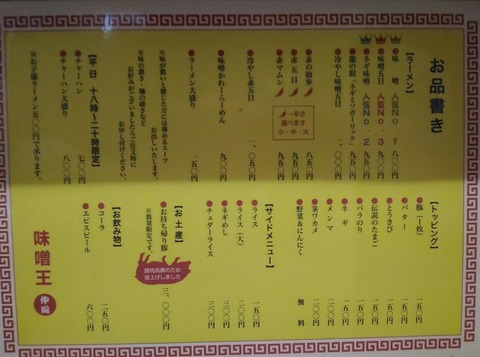 お品書き
【ラーメン】
味噌 人気NO.1 八〇〇円
味噌五目 人気NO.3 九五〇円
ネギ味噌 人気NO.2 九五〇円
龍の髭(ネギミソガーリック) 九五〇円
冷やし味噌五目 一、〇〇〇円
赤の仙歩 八五〇円
赤五目
赤マムシ 九五〇円
→辛さ
選べます
小・中・大
冷やし赤五目 一、〇五〇円
味噌かれーらーめん 九〇〇円
ラーメン大盛り 一五〇円
※味が濃いと感じた方には薄めるスープ
お出しいたします。
※味の濃さ・麺の硬さなど
お好みがございましたらご注文時に
お申し付けください。
【平日 十八時〜二十時限定】
チャーハン 七〇〇円
チャーハン大盛り 八〇〇円
※お子様ラーメン五〇〇円で承ります。
【トッピング】
豚(一枚) 一五〇円
バター 一五〇円
とうきび 一五〇円
伝説のたまご 一五〇円
バラのり 一五〇円
ネギ 一五〇円
メンマ 二〇〇円
茎ワカメ 二〇〇円
野菜&にんにく 無料
【サイドメニュー】
ライス 一五〇円
ライス(大) 二五〇円
ネギめし 三〇〇円
チェダーライス 三〇〇円
【お土産】
お持ち帰り豚 三、〇〇〇円
※数量限定です。
豚肉高騰のため
値上げしました
【お飲み物】
コーラ 二五〇円
エビスビール 六〇〇円
味噌王